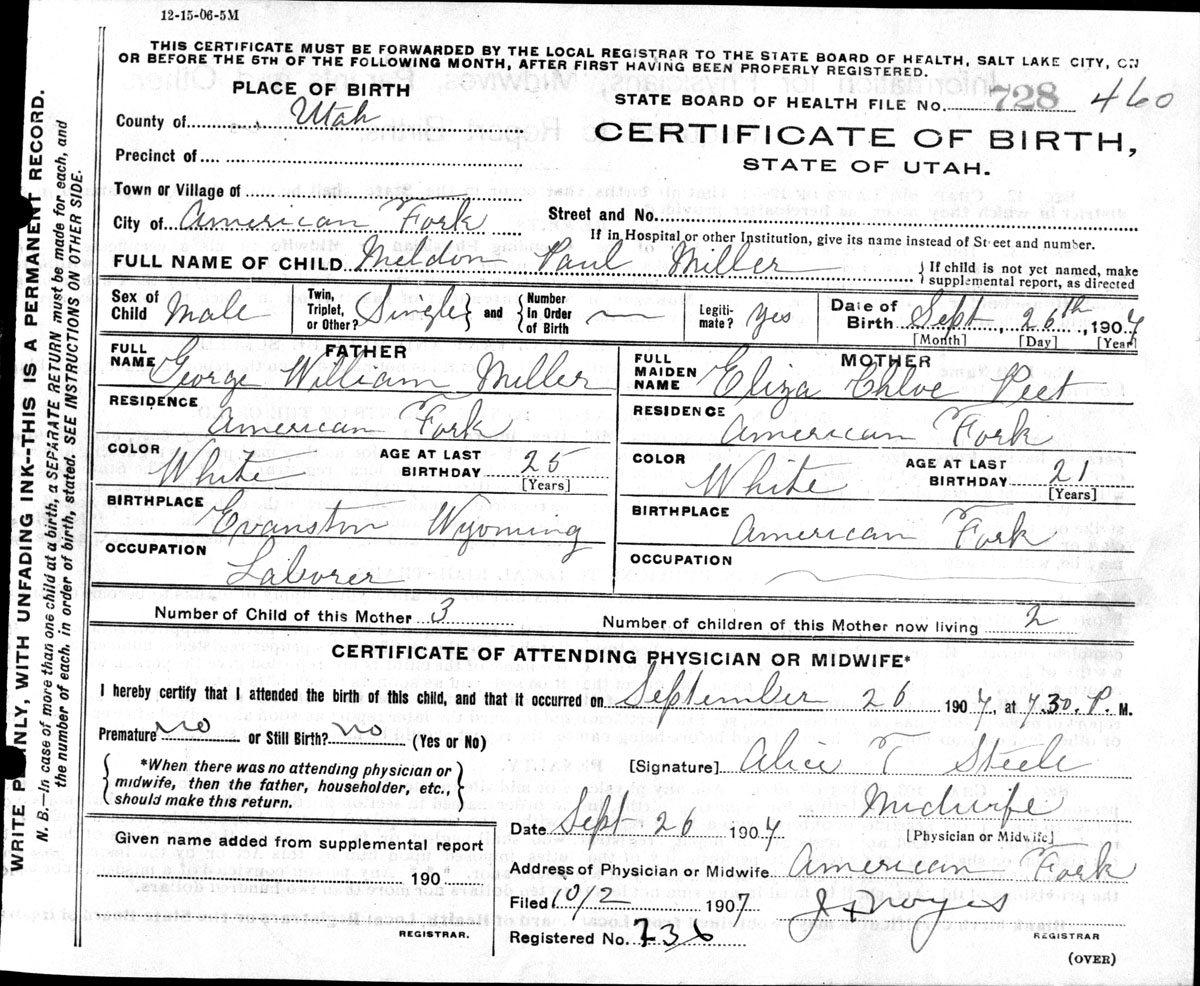 12-15-06-5M
THIS CERTIFICATE MUST BE FORWARDED BY THE LOCAL REGISTRAR TO THE STATE BOARD OF HEALTH, SALT LAKE CITY, ON
OR BEFORE THE 5TH OF THE FOLLOWING MONTH, AFTER FIRST HAVING BEEN PROPERLY REGISTERED.
PLACE OF BIRTH
STATE BOARD OF HEALTH FILE NO. 728 460
County of Utah
CERTIFICATE OF BIRTH,
STATE OF UTAH.
Precinct of
Town or Village of
City of American Fork Street and No.
If in Hospital or other Institution, give its name instead of Street and number.
FULL NAME OF CHILD Meldon Paul Miller { If child is not yet named, make
supplemental report, as directed
Sex of Child Male Twin, Triplet, or Other? Single } and { Number In Order of Birth — Legiti-mate? Yes Date of Birth Sept, 26th, 1907
[Month] [Day] [Year]
FATHER
FULL NAME George William Miller
RESIDENCE
American Fork
COLOR White AGE AT LAST BIRTHDAY 25
[Years]
BIRTHPLACE
Evanston Wyoming
OCCUPATION
Laborer
MOTHER
FULL MAIDEN NAME Eliza Chloe Peet
RESIDENCE
American Fork
COLOR White AGE AT LAST BIRTHDAY 21
[Years]
BIRTHPLACE
American Fork
OCCUPATION
Number of Child of this Mother 3 Number of children of this Mother now living 2
CERTIFICATE OF ATTENDING PHYSICIAN OR MIDWIFE*
I hereby certify that I attended the birth of this child, and that it occurred on September 26 1907 at 4.30. P. M.
Premature No or Still Birth? No (Yes or No)
{ *When there was no attending physician or
midwife, then the father, householder, etc.,
should make this return. }
[Signature] Alice Steele
Midwife
[Physician or Midwife]
Date Sept 26 1907
Address of Physician or Midwife American Fork
Filed 10/2 1907
Registered No. 236
REGISTRAR
(OVER)
Given name added from supplemental report
190
REGISTRAR.
WRITE PLAINLY, WITH UNFADING INK—THIS IS A PERMANENT RECORD.
N. B.—In case of more than one child at a birth, a SEPARATE RETURN must be made for each, and
the number of each, in order of birth, stated. SEE INSTRUCTIONS ON OTHER SIDE.